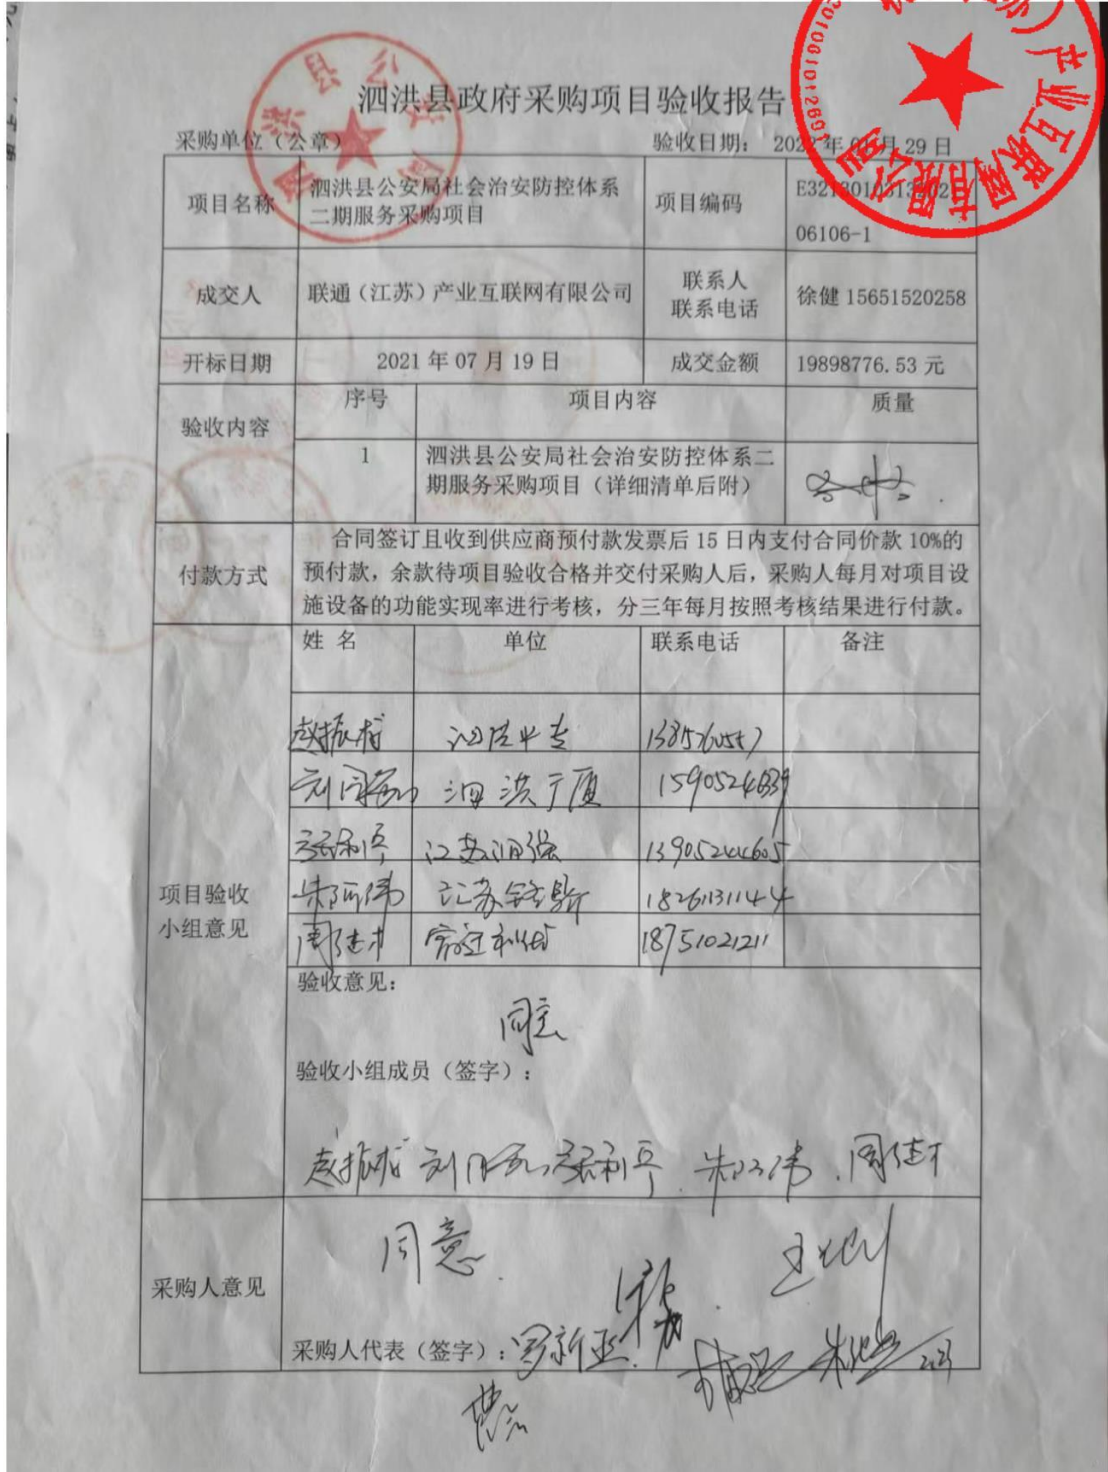 泗洪县政府采购项目验收报告
采购单位（公章）
验收日期： 2022年01月29日
项目名称
泗洪县公安局社会治安防控体系
二期服务采购项目
项目编码
06106-1
成交人
联通（江苏）产业互联网有限公司
联系人
联系电话
徐健 15651520258
开标日期
2021年07月19日
成交金额
19898776.53元
验收内容
序号
项目内容
质量
1
泗洪县公安局社会治安防控体系二
期服务采购项目（详细清单后附）
合格
付款方式
合同签订且收到供应商预付款发票后15日内支付合同价款10%的
预付款，余款待项目验收合格并交付采购人后，采购人每月对项目设
施设备的功能实现率进行考核，分三年每月按照考核结果进行付款。
项目验收
小组意见
姓 名
单位
联系电话
备注
赵振
泗洪
刘
泗洪广厦
利平
江苏
13905244605
朱 伟
江苏
18261131144
周建才
18751021211
验收意见：
同意
验收小组成员（签字）：
赵振 刘 利平 朱 伟 周建才
采购人意见
同意
采购人代表（签字）：罗新
泗洪县公安局
产业互联网有限公司